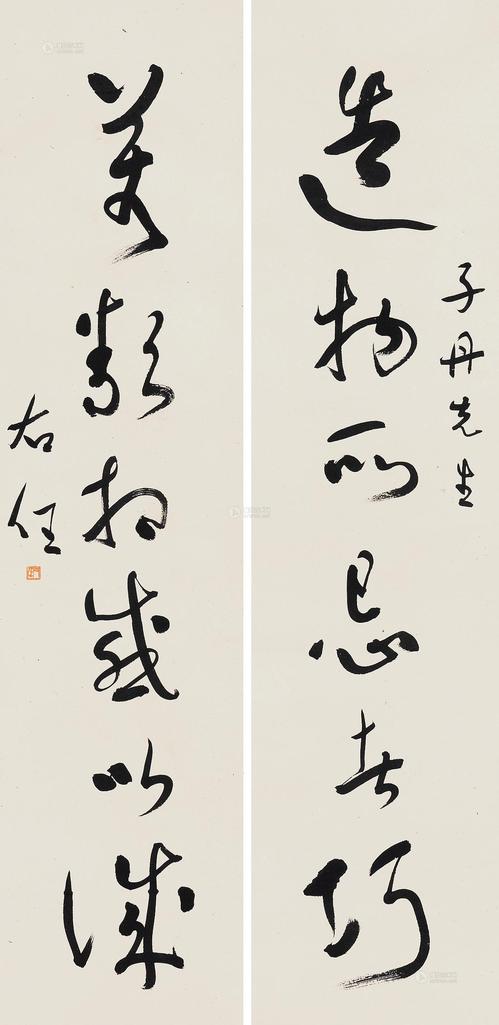 造物所忌者巧
子丹先生
萬類相感以誠
右任